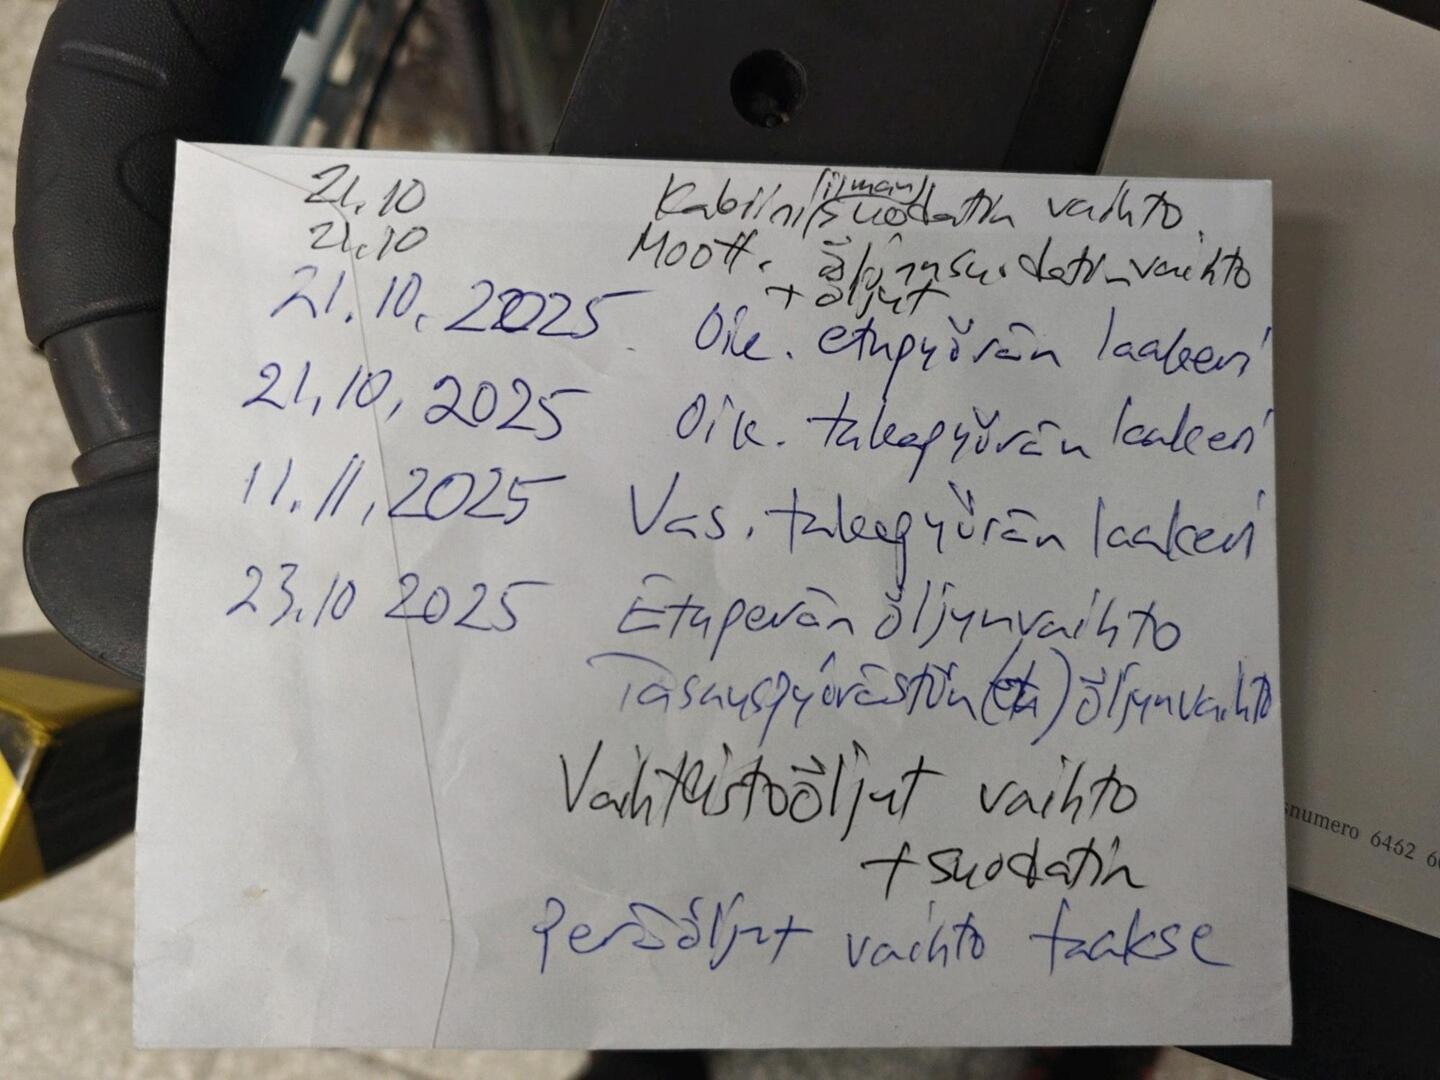 21.10 Kabiini(ilman)suodatin vaihto.
21.10 Moott. öljynsuodatinvaihto
+ öljyt
21.10.2025 Oik. etupyörän laakeri
21.10.2025 Oik. takapyörän laakeri
11.11.2025 Vas. takapyörän laakeri
23.10 2025 Etuperän öljynvaihto
Tasauspyörästön (etu) öljynvaihto
Vaihteistoöljyt vaihto
+ suodatin
peräöljyt vaihto taakse
numero 6462 6